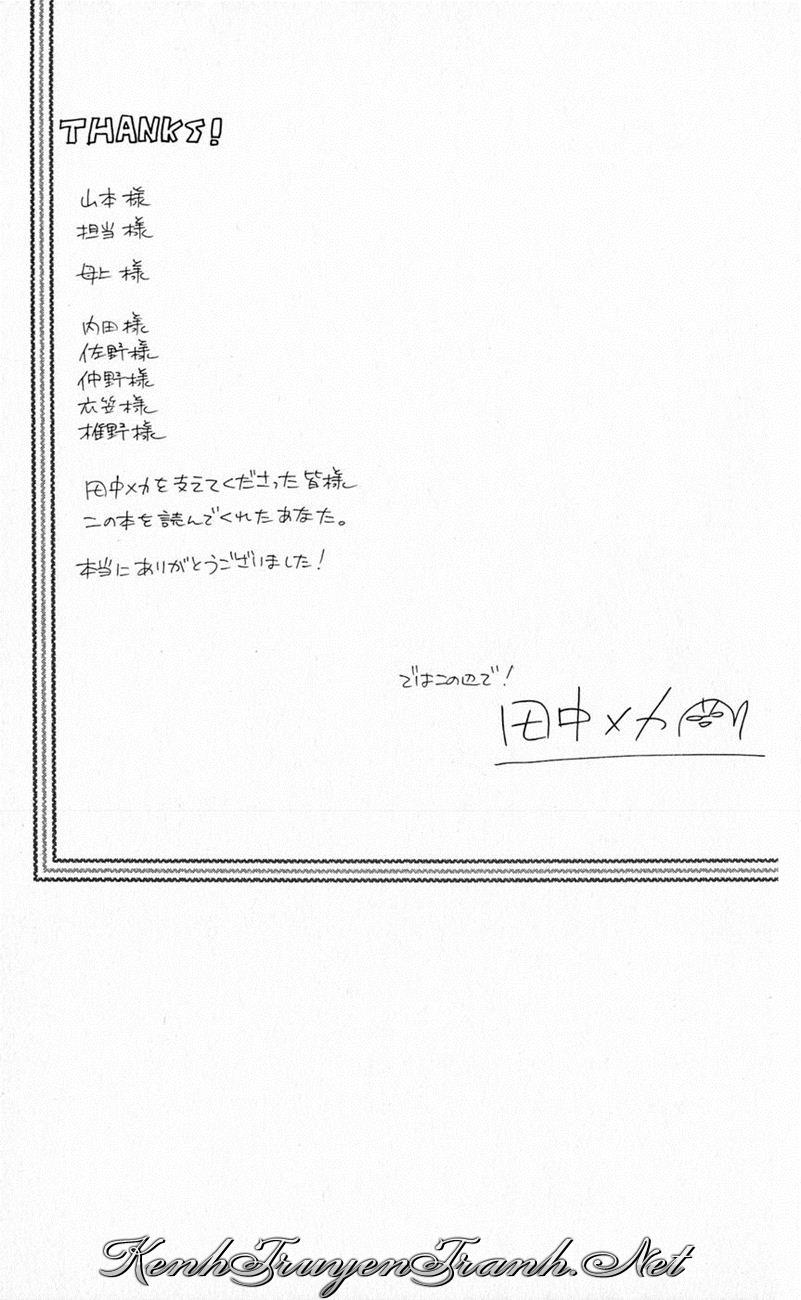 THANKS!
山本様
担当様
母上様
内田様
佐野様
仲野様
衣笠様
椎野様
田中メカを支えてくださった皆様
この本を読んでくれたあなた。
本当にありがとうございました!
ではこの辺で!
田中メカ
KenhTruyenTranh.Net